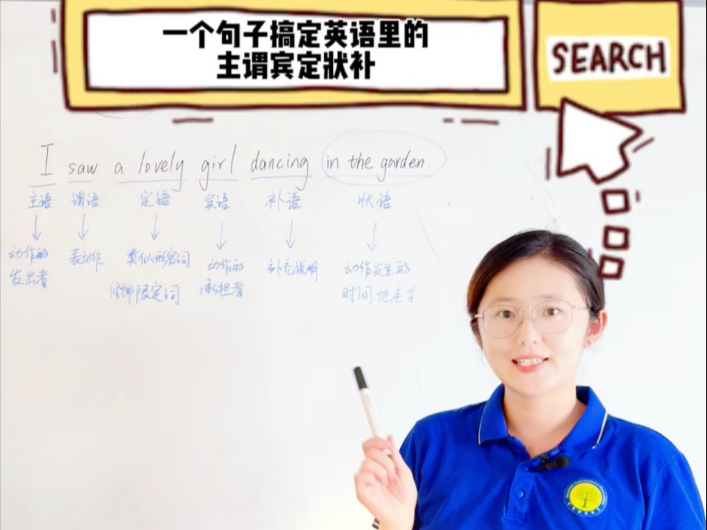 一个句子搞定英语里的
主谓宾定状补
SEARCH
I saw a lovely girl dancing in the garden.
主语 谓语 定语 宾语 补语 状语
动作的 表动作 类似形容词 动作的 补充说明 动作发生的
发出者 修饰限定词 承担者 时间.地点等